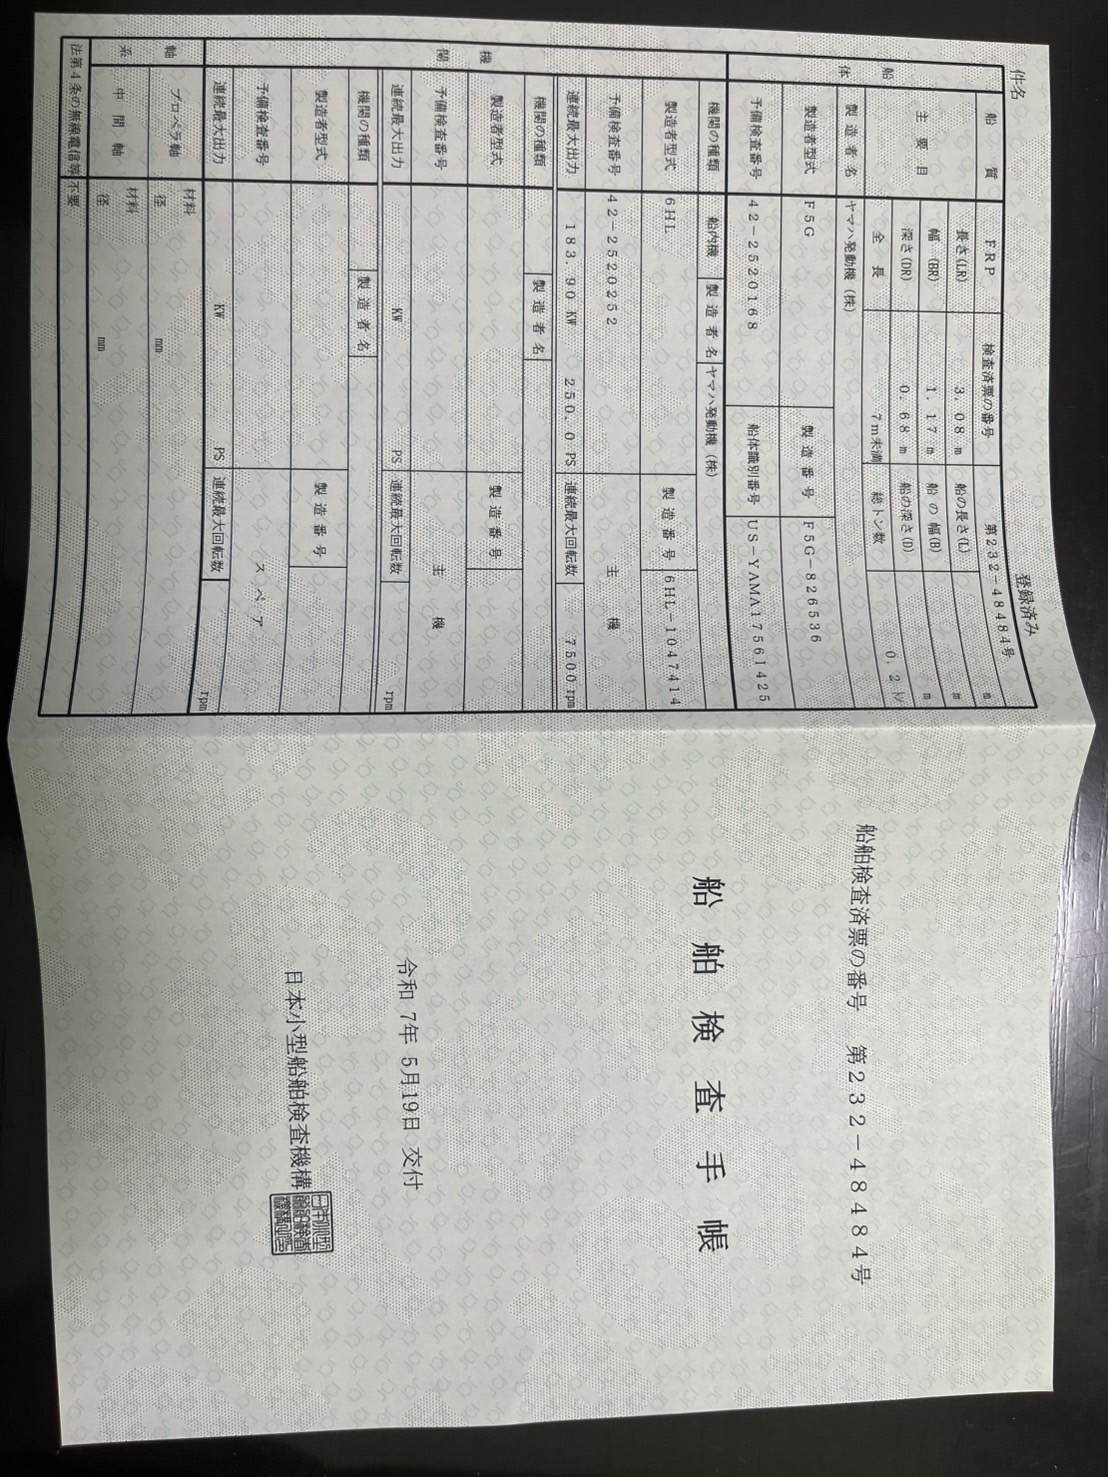 件名
登録済み
船質 FRP 検査済票の番号 第232-48484号
船体 主要目 長さ(LR) 3.08 m 船の長さ(L) m
幅(BR) 1.17 m 船の幅(B) m
深さ(DR) 0.68 m 船の深さ(D) m
全長 7m未満 総トン数 0.2 トン
製造者名 ヤマハ発動機(株)
製造者型式 F5G 製造番号 F5G-826536
予備検査番号 42-2520168 船体識別番号 US-YAMA17561425
機関 機関の種類 船内機 製造者名 ヤマハ発動機(株)
製造者型式 6HL 製造番号 6HL-1047414
予備検査番号 42-2520252 主機
連続最大出力 183.90 KW 250.0 PS 連続最大回転数 7500 rpm
機関の種類 製造者名
製造者型式 製造番号
予備検査番号 主機
連続最大出力 KW PS 連続最大回転数 rpm
機関の種類 製造者名
製造者型式 製造番号
予備検査番号 スペア
連続最大出力 KW PS 連続最大回転数 rpm
軸系 プロペラ軸 材料
径 mm
中間軸 材料
径 mm
法第4条の無線電信等 不要
船舶検査済票の番号 第232-48484号
船舶検査手帳
令和 7年 5月19日 交付
日本小型船舶検査機構